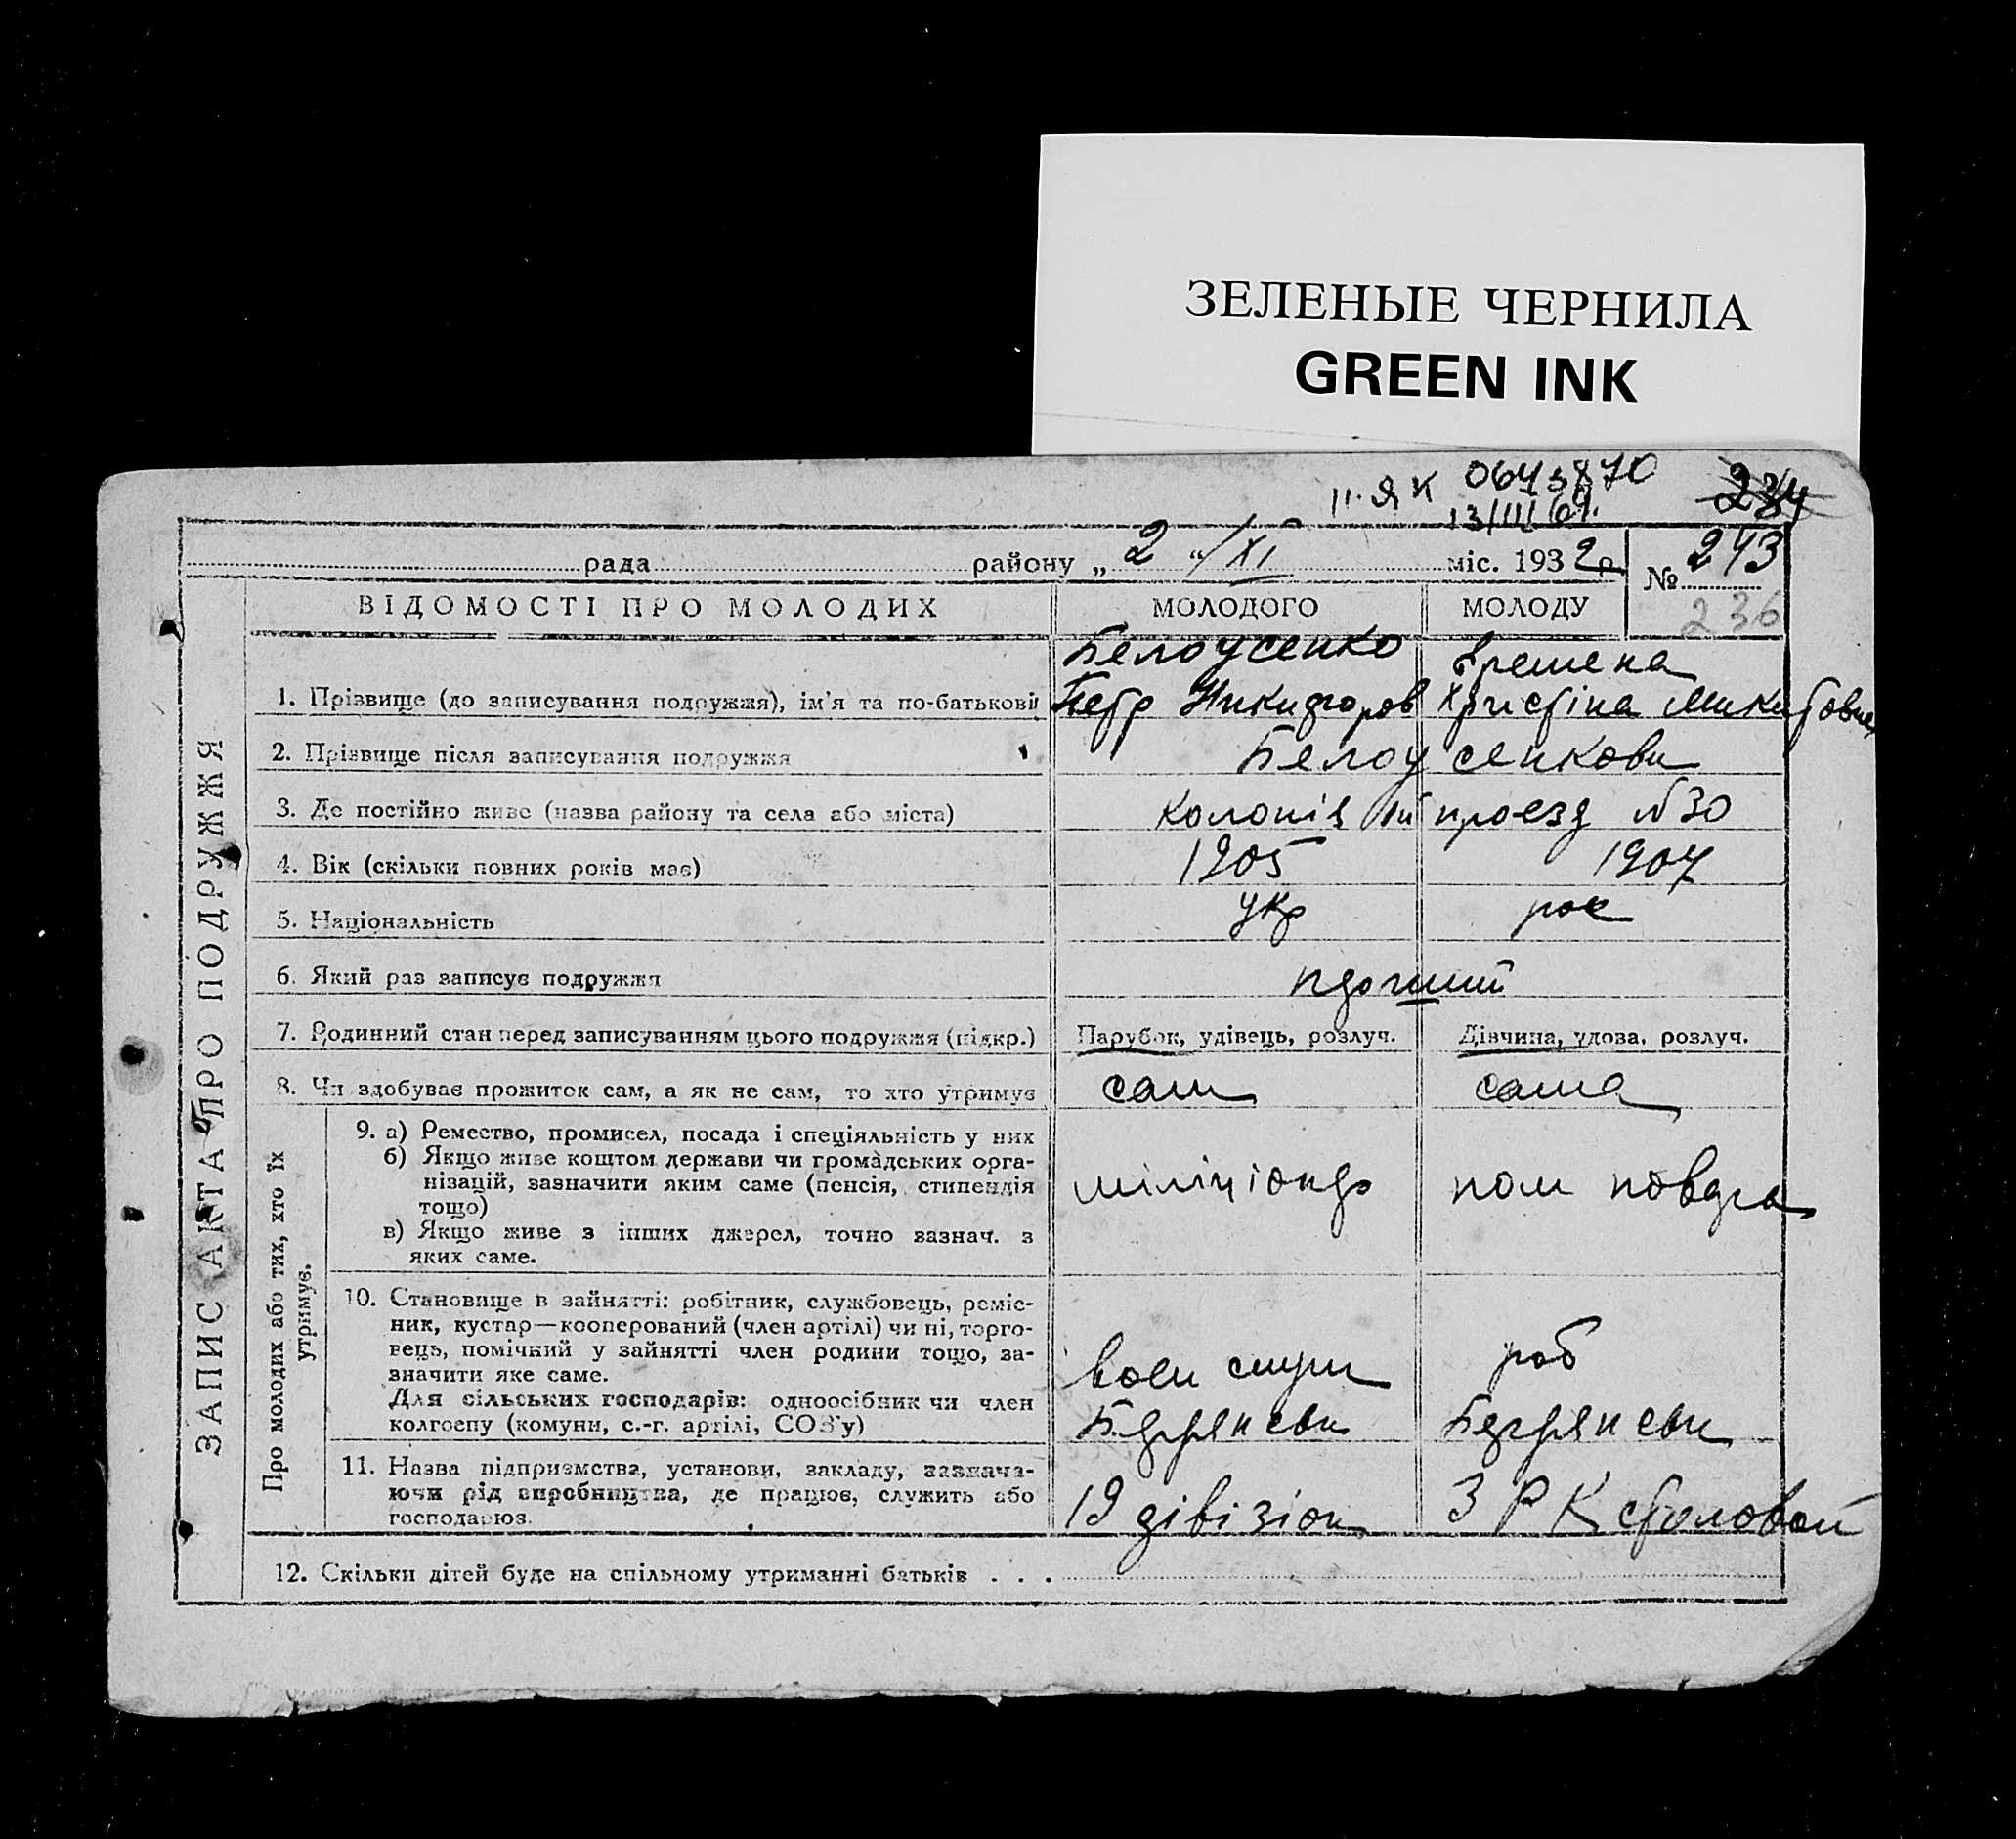 ЗЕЛЕНЫЕ ЧЕРНИЛА
GREEN INK
II-ЯК 0643870 234
13/III 69.
рада району „ 2 “ / XI міс. 1932 р № 243
236
ЗАПИС АКТА ПРО ПОДРУЖЖЯ
ВІДОМОСТІ ПРО МОЛОДИХ МОЛОДОГО МОЛОДУ
Белоусенко
1. Прізвище (до записування подружжя), ім'я та по-батькові Петр Никифоров Христіна Микитовна
2. Прізвище після записування подружжя Белоусенкови
3. Де постійно живе (назва району та села або міста) Колонія проезд №30
4. Вік (скільки повних років має) 1905 1907
5. Національність укр рос
6. Який раз записує подружжя
7. Родинний стан перед записуванням цього подружжя (підкр.) Парубок, удівець, розлуч. Дівчина, удова, розлуч.
8. Чи здобуває прожиток сам, а як не сам, то хто утримує сам сама
Про молодих або тих, хто їх утримує.
9. а) Ремество, промисел, посада і спеціяльність у них
б) Якщо живе коштом держави чи громадських орга-
нізацій, зазначити яким саме (пенсія, стипендія міліціонер пом повара
тощо)
в) Якщо живе з інших джерел, точно зазнач. з
яких саме.
10. Становище в зайнятті: робітник, службовець, реміс-
ник, кустар—кооперований (член артілі) чи ні, торго-
вець, помічний у зайнятті член родини тощо, за- роб
значити яке саме.
Для сільських господарів: одноосібник чи член
колгоспу (комуни, с.-г. артілі, СОЗ'у)
11. Назва підприємства, установи, закладу, зазнача-
ючи рід виробництва, де працює, служить або 19 дівізіон З Р К столовой
господарює.
12. Скільки дітей буде на спільному утриманні батьків . . .